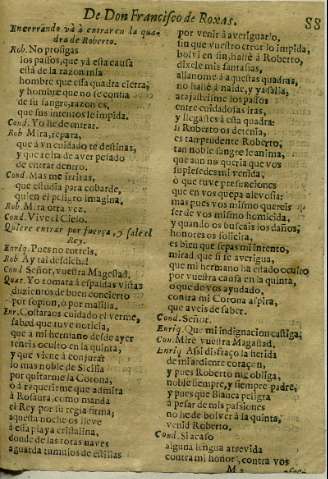 De Don Francisco de Roxas.
88
Encerrando và à entrar en la qua-
dra de Roberto.
Rob. No prosigas
los passos, que yà esta causa
està de la razon mia
hombre que esta quadra cierra,
y hombre que no se confia
de su sangre, razon es,
que sus intentos le impida.
Cond. Yo he de entrar.
Rob. Mira, repara,
que à vn cuidado te destinas,
y que te ha de aver pesado
de entrar dentro.
Cond. Mas me irritas,
que estudia para cobarde,
quien el peligro imagina.
Rob. Mira otra vez.
Cond. Vive el Cielo.
Quiere entrar por fuerça, y sale el
Rey.
Enriq. Pues no entreis.
Rob. Ay tal desdicha!
Cond. Señor, vuestra Magestad,
Quar. Yo tomara à espaldas vistas
duzientos de buen concierto
por sopion, ò por malilla.
Enr. Costaraos cuidado el verme,
sabed que tuve noticia,
que a mi hermano desde ayer
teneis oculto en la quinta,
y que viene à conjurar
lo mas noble de Sicilia
por quitarme la Corona,
ò à requerirme que admita
à Rosaura, como manda
el Rey por su regia firma;
aquesta noche os lleve
à essa playa cristalina,
donde de las rotas naves
aguarda tumulos de astillas
por venir à averiguarlo,
sin que vuestro error lo impida,
bolvi en sin, hallè à Roberto,
dixele mis fantasias,
allanome à aquestas quadras,
no hallè à naide, y ya salia,
arajasteisme los passos
entre cuidadosas iras,
y llegasteis à esta quadra:
si Roberto os detenia,
es tan prudente Roberto,
tan noble sangre le anima,
que aun no queria que vos
supiessedes mi venida,
o que tuve presunciones
que en vos quepa alevosia:
mas pues vos mismo quereis
ser de vos mismo homicida,
y quando os buscais los daños,
honores os solicita,
es bien que sepas mi intento,
mirad que si se averigua,
que mi hermano ha estado oculto
por vuestra causa en la quinta,
o que de vos ayudado,
contra mi Corona aspira,
que aveis de saber.
Cond. Señor.
Enriq. Que mi indignacion castiga.
Con. Mire vuestra Magestad.
Enriq. Assi disfraço la herida
de mi ardiente coraçon,
y pues Roberto me obliga,
noble siempre, y siempre padre,
y pues que Blanca peligra
à pesar de mis passiones
no he de bolver à la quinta,
venid Roberto.
Cond. Si acaso
alguna lengua atrevida
contra mi honor, contra vos
M 2